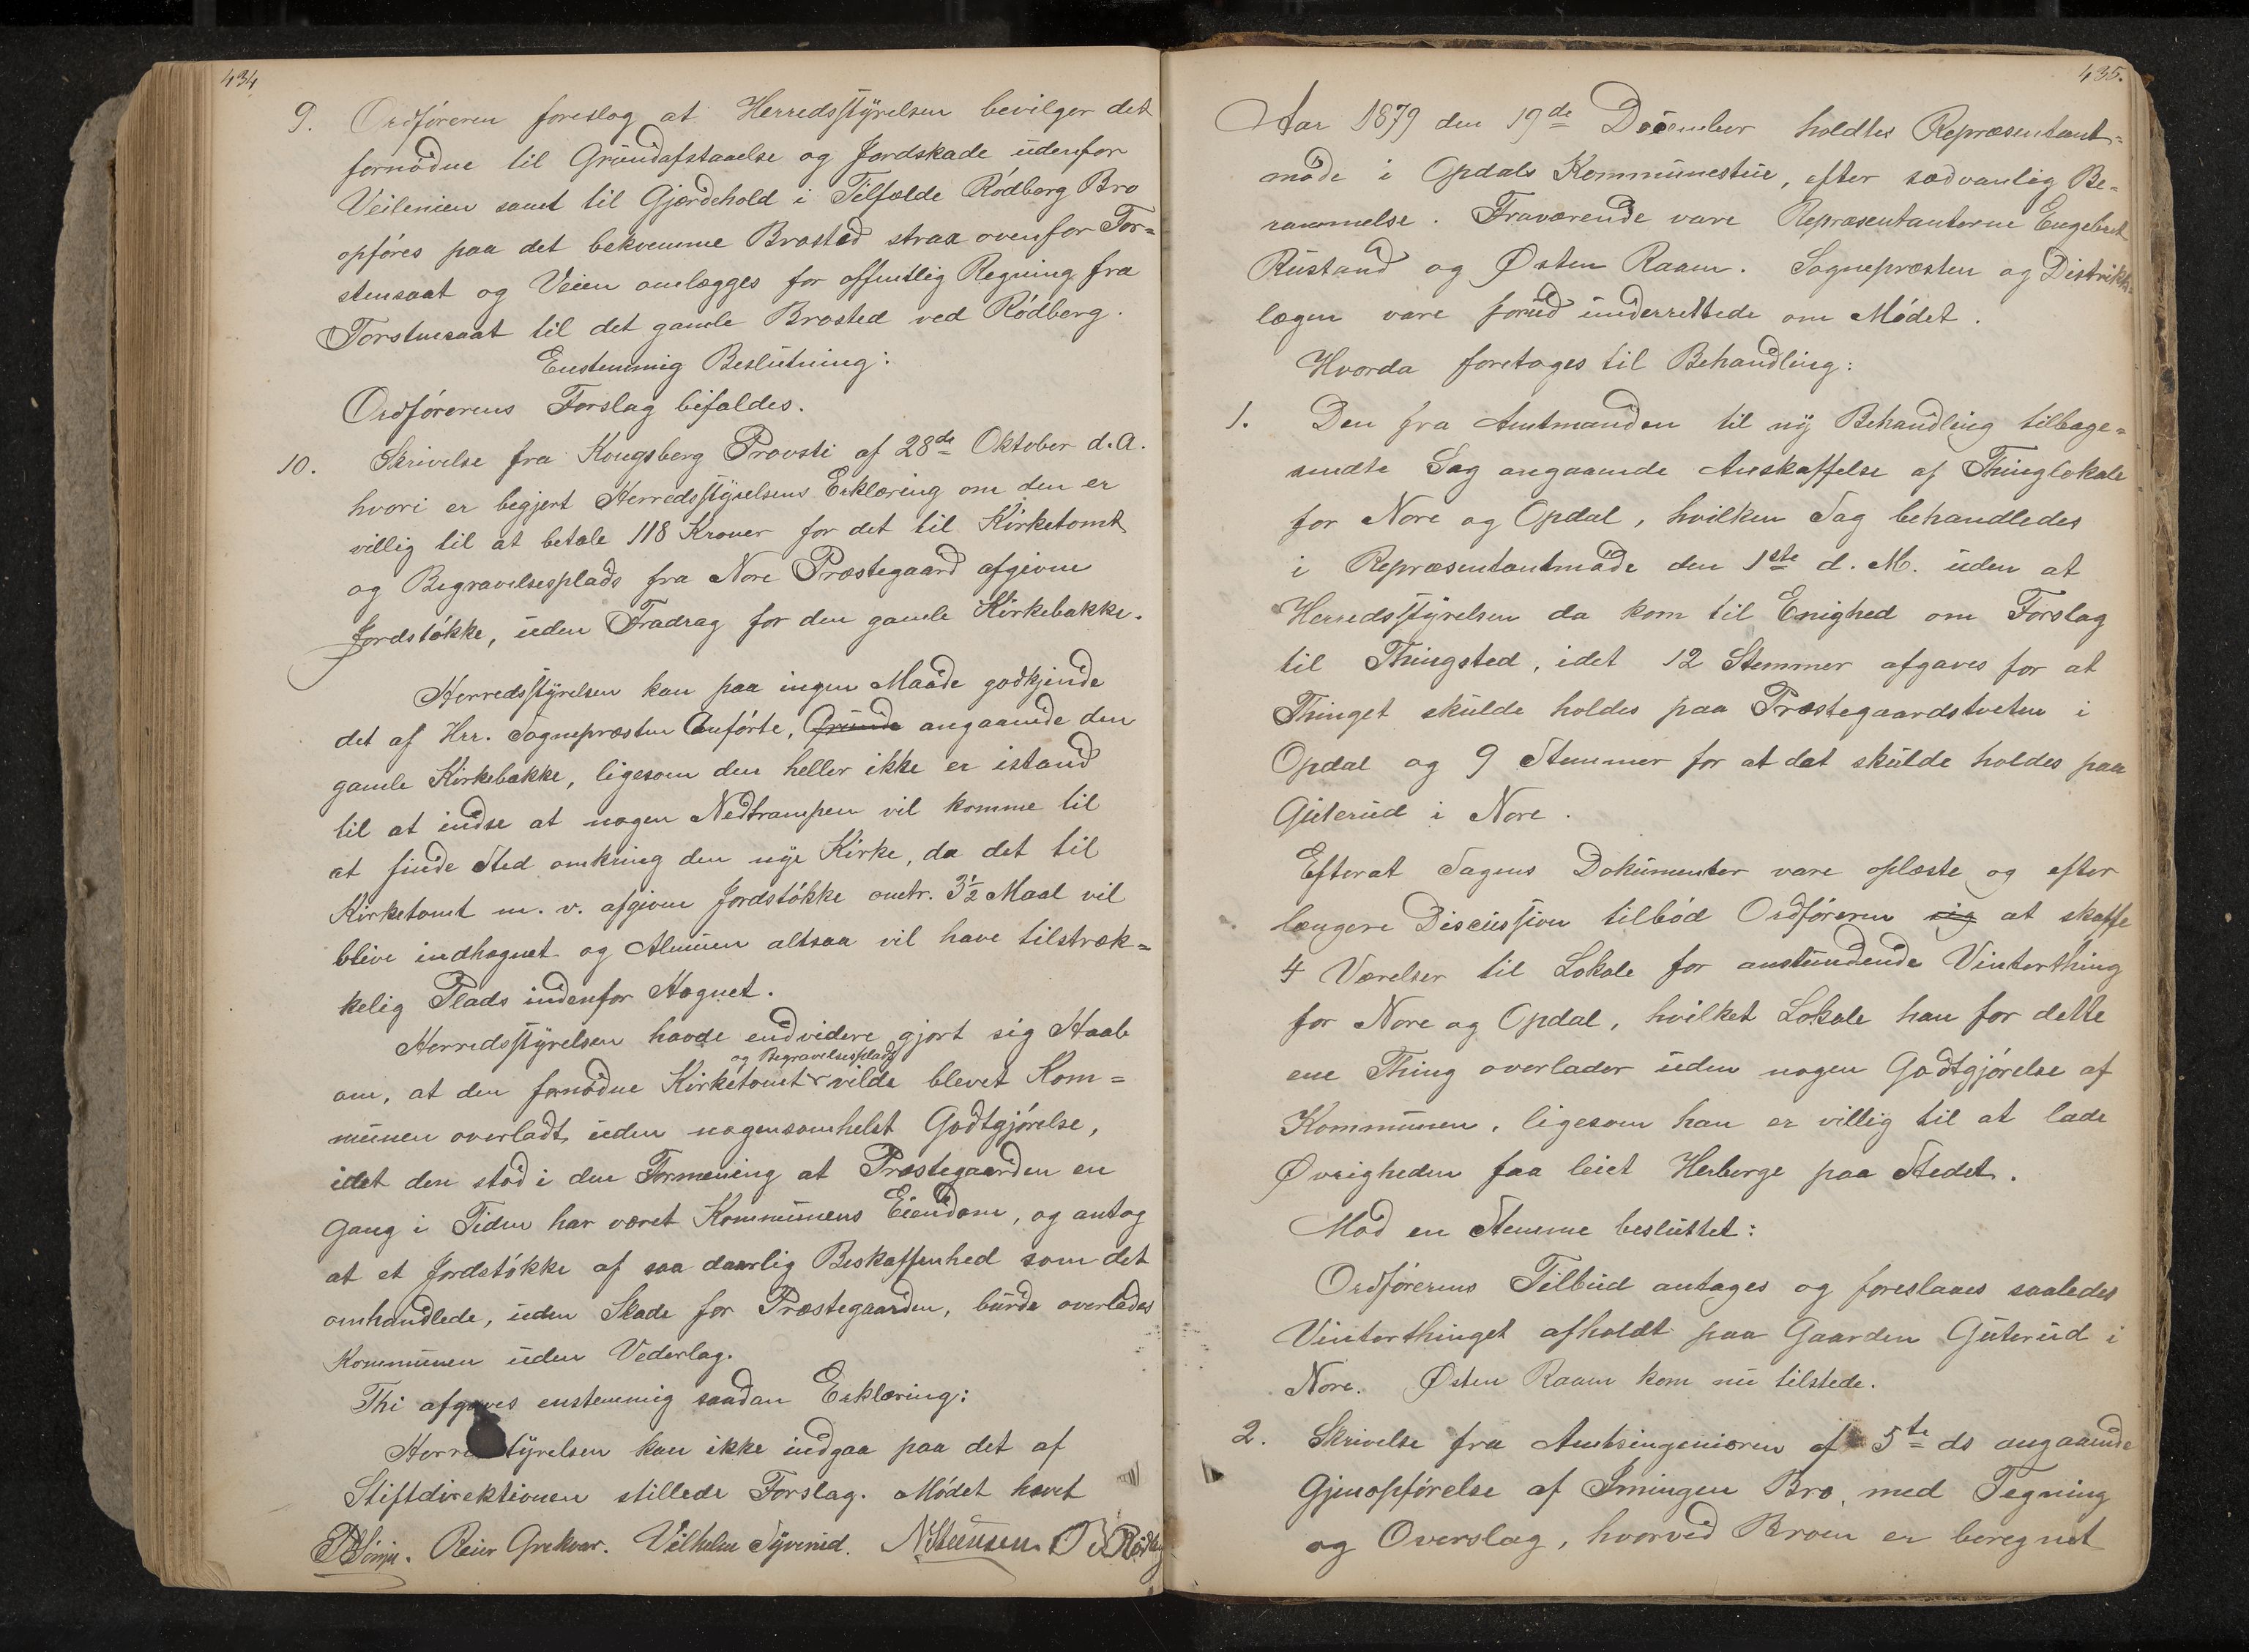 434
9. Ordføreren foreslog at Herredsstyrelsen bevilger det
fornødne til Grundafstaaelse og Jordskade udenfor
Veilinien samt til Gjærdehold i Tilfælde Rødberg Bro
opføres paa det bekvemme Brosted strax ovenfor Tor=
stensaat og Veien omlægges for offentlig Regning fra
Torstensaat til det gamle Brosted ved Rødberg.
Enstemmig Beslutning:
Ordførerens Forslag bifaldes.
10. Skrivelse fra Kongsberg Provsti af 28de Oktober d.A.
hvori er begjert Herredsstyrelsens Erklæring om den er
villig til at betale 118 Kroner for det til Kirketomt
og Begravelsesplads fra Nore Præstegaard afgivne
Jordstøkke, uden Fradrag for den gamle Kirkebakke.
Herredsstyrelsen kan paa ingen Maade godkjende
det af Hrr. Sognepræsten Anførte, Grunde angaaende den
gamle Kirkebakke, ligesom den heller ikke er istand
til at indse at nogen Nedtrampen vil komme til
at finde Sted omkring den nye Kirke, da det til
Kirketomt m. v. afgivne Jordstøkke omtr. 3½ Maal vil
blive indhegnet og Almuen altsaa vil have tilstræk=
kelig Plads indenfor Hegnet.
Herredsstyrelsen havde endvidere gjort sig Haab
og Begravelsesplads
om, at den fornødne Kirketomt vilde blevet Kom=
munen overladt uden nogensomhelst Godtgjørelse,
idet den stod i den Formening at Præstegaarden en
Gang i Tiden har været Kommunens Eiendom, og antog
at et Jordstøkke af saa daarlig Beskaffenhed som det
omhandlede, uden Skade for Præstegaarden, burde overlades
Kommunen uden Vederlag.
Thi afgaves enstemmig saadan Erklæring:
Herredsstyrelsen kan ikke indgaa paa det af
Stiftdirektionen stillede Forslag. Mødet hævet
Reier Grekvar. Vilhelm Tyverud. N Steensen
435.
Aar 1879 den 19de December holdtes Repræsentant=
møde i Opdals Kommunestue, efter sædvanlig Be=
rammelse. Fraværende vare Repræsentanterne Engebret
Rustand og Østen Raaen. Sognepræsten og Distrikts=
lægen vare forud underrettede om Mødet.
Hvorda foretages til Behandling:
1. Den fra Amtmanden til ny Behandling tilbage=
sendte Sag angaaende Anskaffelse af Thinglokale
for Nore og Opdal, hvilken Sag behandledes
i Repræsentantmøde den 1ste d. M. uden at
Herredsstyrelsen da kom til Enighed om Forslag
til Thingsted, idet 12 Stemmer afgaves for at
Thinget skulde holdes paa Præstegaardstveten i
Opdal og 9 Stemmer for at det skulde holdes paa
Guterud i Nore.
Efterat Sagens Dokumenter vare oplæste og efter
længere Discussion tilbød Ordføreren sig at skaffe
4 Værelser til Lokale for anstundende Vinterthing
for Nore og Opdal, hvilket Lokale han for dette
ene Thing overlader uden nogen Godtgjørelse af
Kommunen, ligesom han er villig til at lade
Øvrigheden faa leiet Herberge paa Stedet.
Mod en Stemme besluttet:
Ordførerens Tilbud antages og foreslaaes saaledes
Vinterthinget afholdt paa Gaarden Guterud i
Nore. Østen Raaen kom nu tilstede.
2. Skrivelse fra Amtsingeniøren af 5te ds angaaende
Gjenopførelse af Smingen Bro, med Tegning
og Overslag, hvorved Broen er beregnet